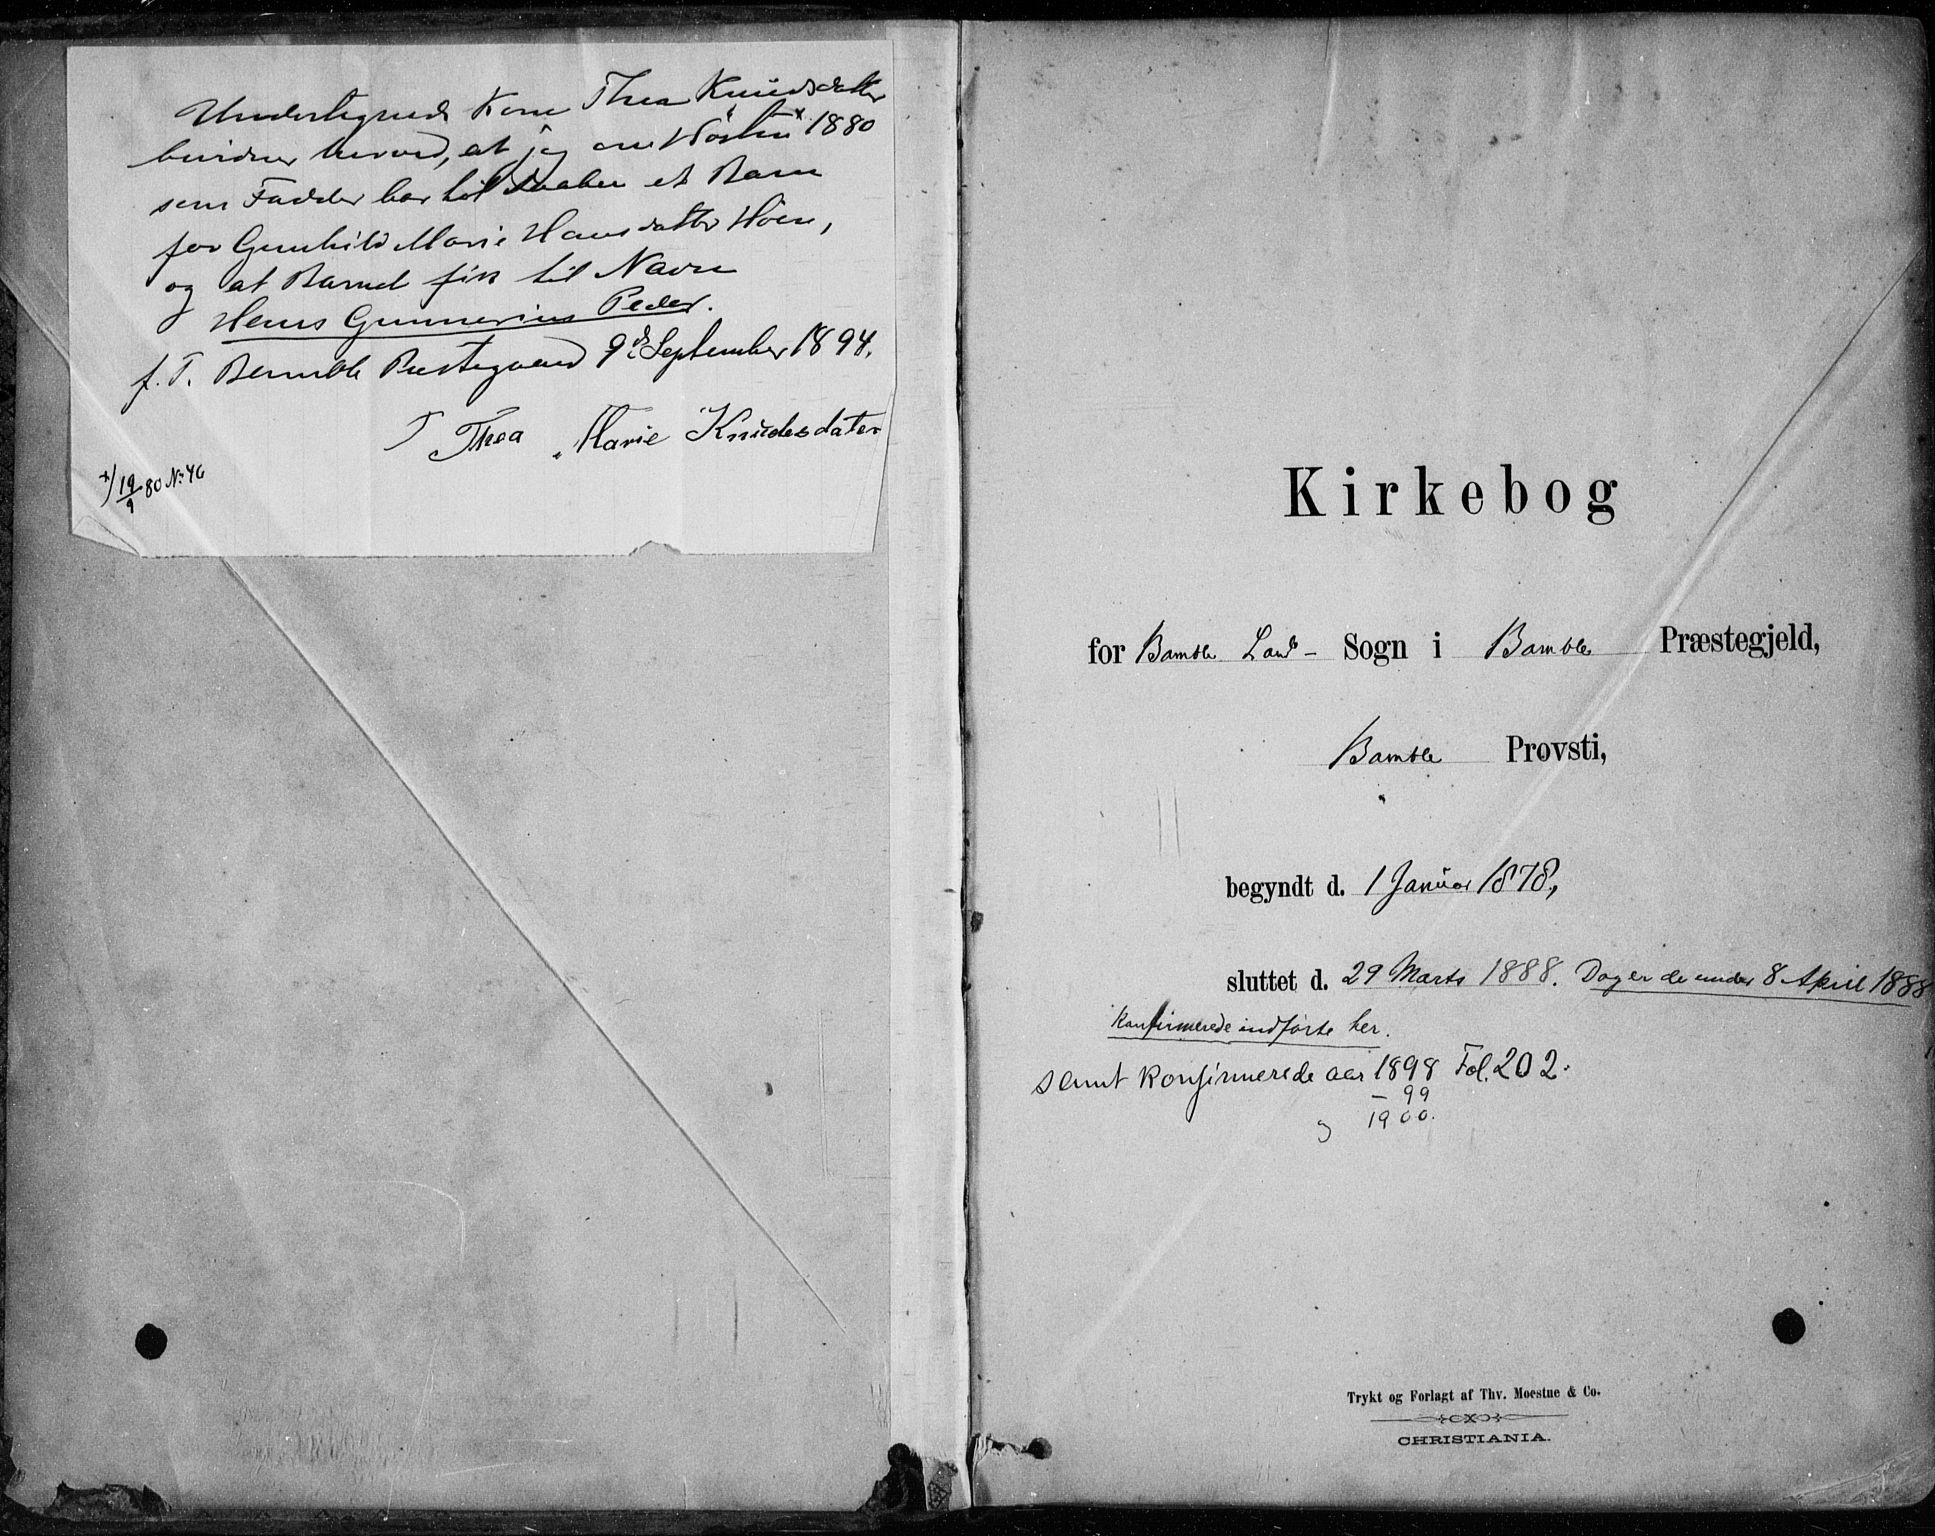 Undertegnede Kone Thea Knudsdatter
bevidner herved, at jeg om Høsten x 1880
som Fadder bar til Daaben et Barn
for Gunhild Marie Hansdatter Hoen,
og at Barnet fik til Navn
Hans Gunnerius Peder.
f. T. Bamble Prestegaard 9de September 1894.
Thea Marie Knudesdater
x) 19/9 80 No 46
Kirkebog
for Bamble Land- Sogn i Bamble Præstegjeld,
Bamble Provsti,
begyndt d. 1 Januar 1878,
sluttet d. 29 Marts 1888. Dog er de under 8 April 1888
Konfirmerede indførte her.
samt konfirmerede aar 1898 Fol. 202.
- 99
og 1900.
Trykt og Forlagt af Thv. Moestue & Co.
CHRISTIANIA.